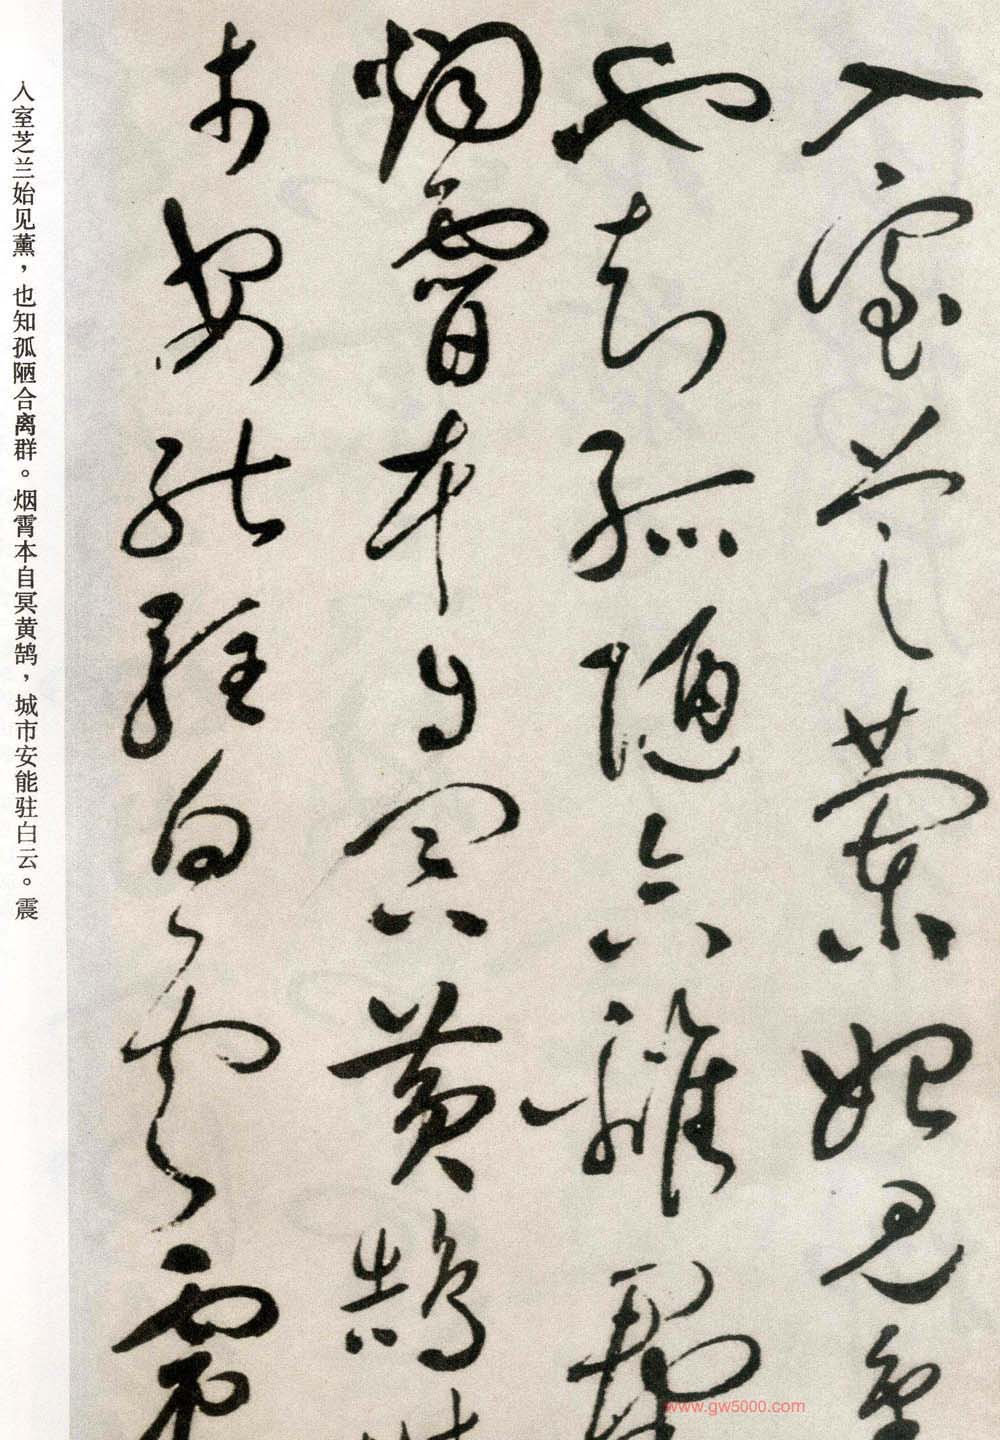 入室芝兰始见薰
也知孤陋合离群
烟霄本自冥黄鹄城
市安能驻白云震
入室芝兰始见薰，也知孤陋合离群。烟霄本自冥黄鹄，城市安能驻白云。震
www.gw5000.com